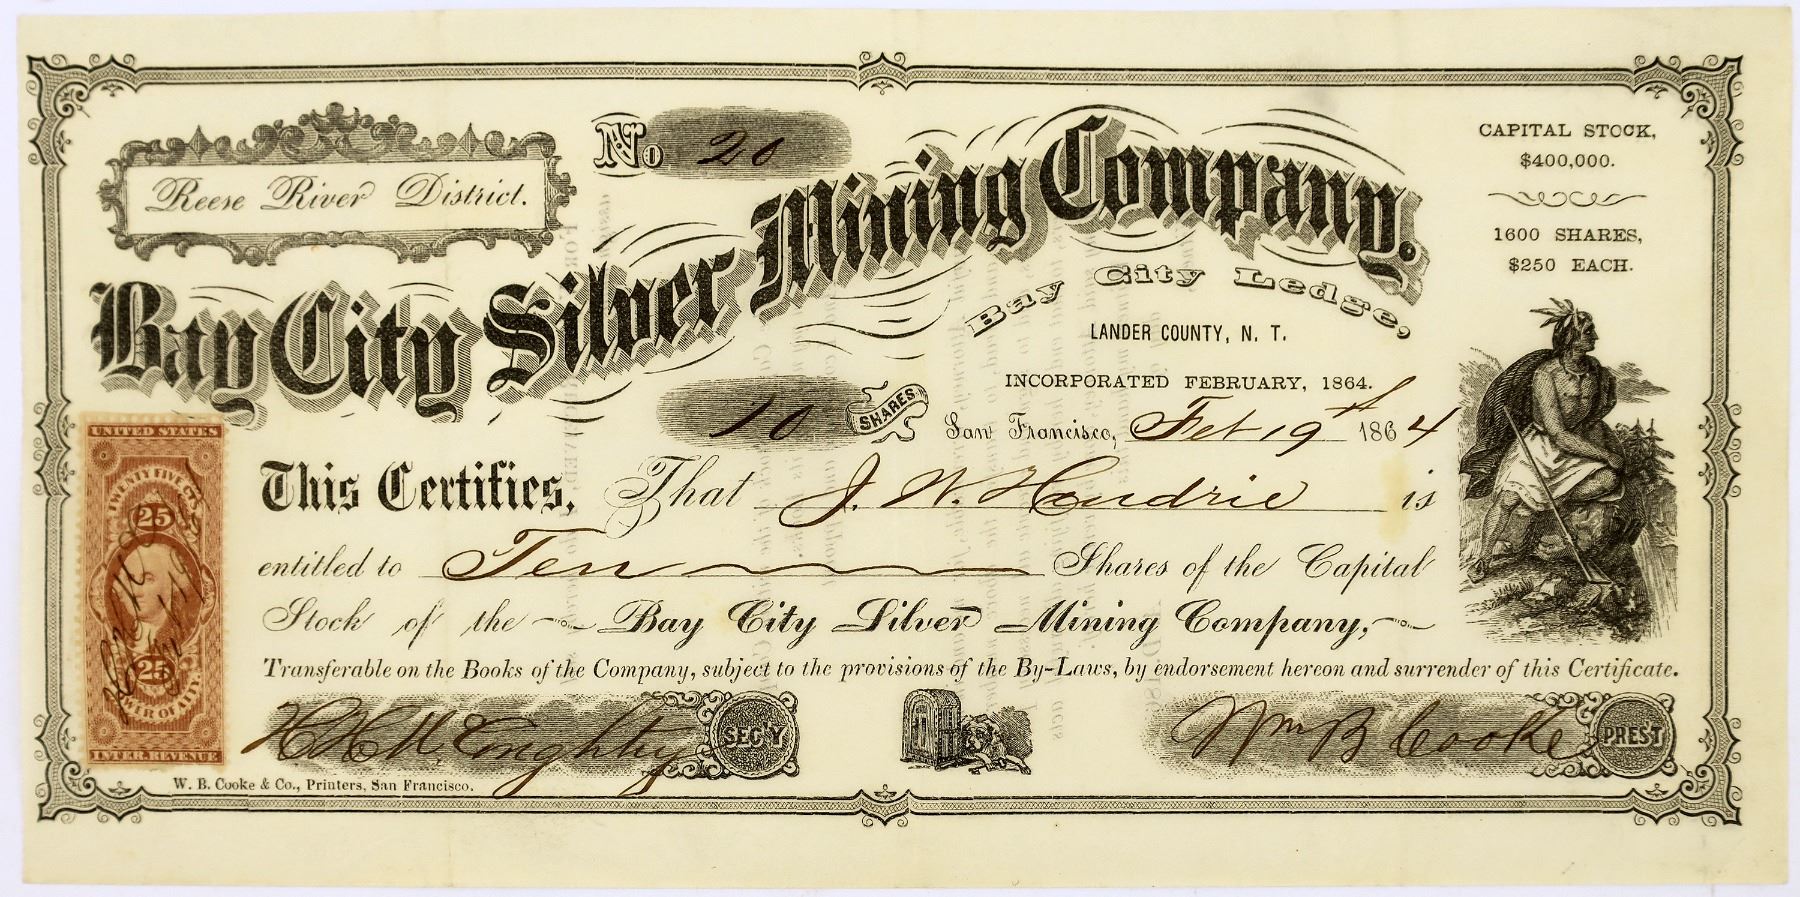 Reese River District.
No 20
CAPITAL STOCK,
$400,000.
1600 SHARES,
$250 EACH.
Bay City Silver Mining Company.
Bay City Ledge,
LANDER COUNTY, N. T.
INCORPORATED FEBRUARY, 1864.
10 SHARES
San Francisco, Feb 19th 1864
This Certifies, That J. W. Hendrie is
entitled to Ten Shares of the Capital
Stock of the Bay City Silver Mining Company,
Transferable on the Books of the Company, subject to the provisions of the By-Laws, by endorsement hereon and surrender of this Certificate.
SEC'Y
Wm B Cooke PREST
W. B. Cooke & Co., Printers, San Francisco.
UNITED STATES
TWENTY FIVE CTS
25
25
POWER OF ATTY.
INTER. REVENUE